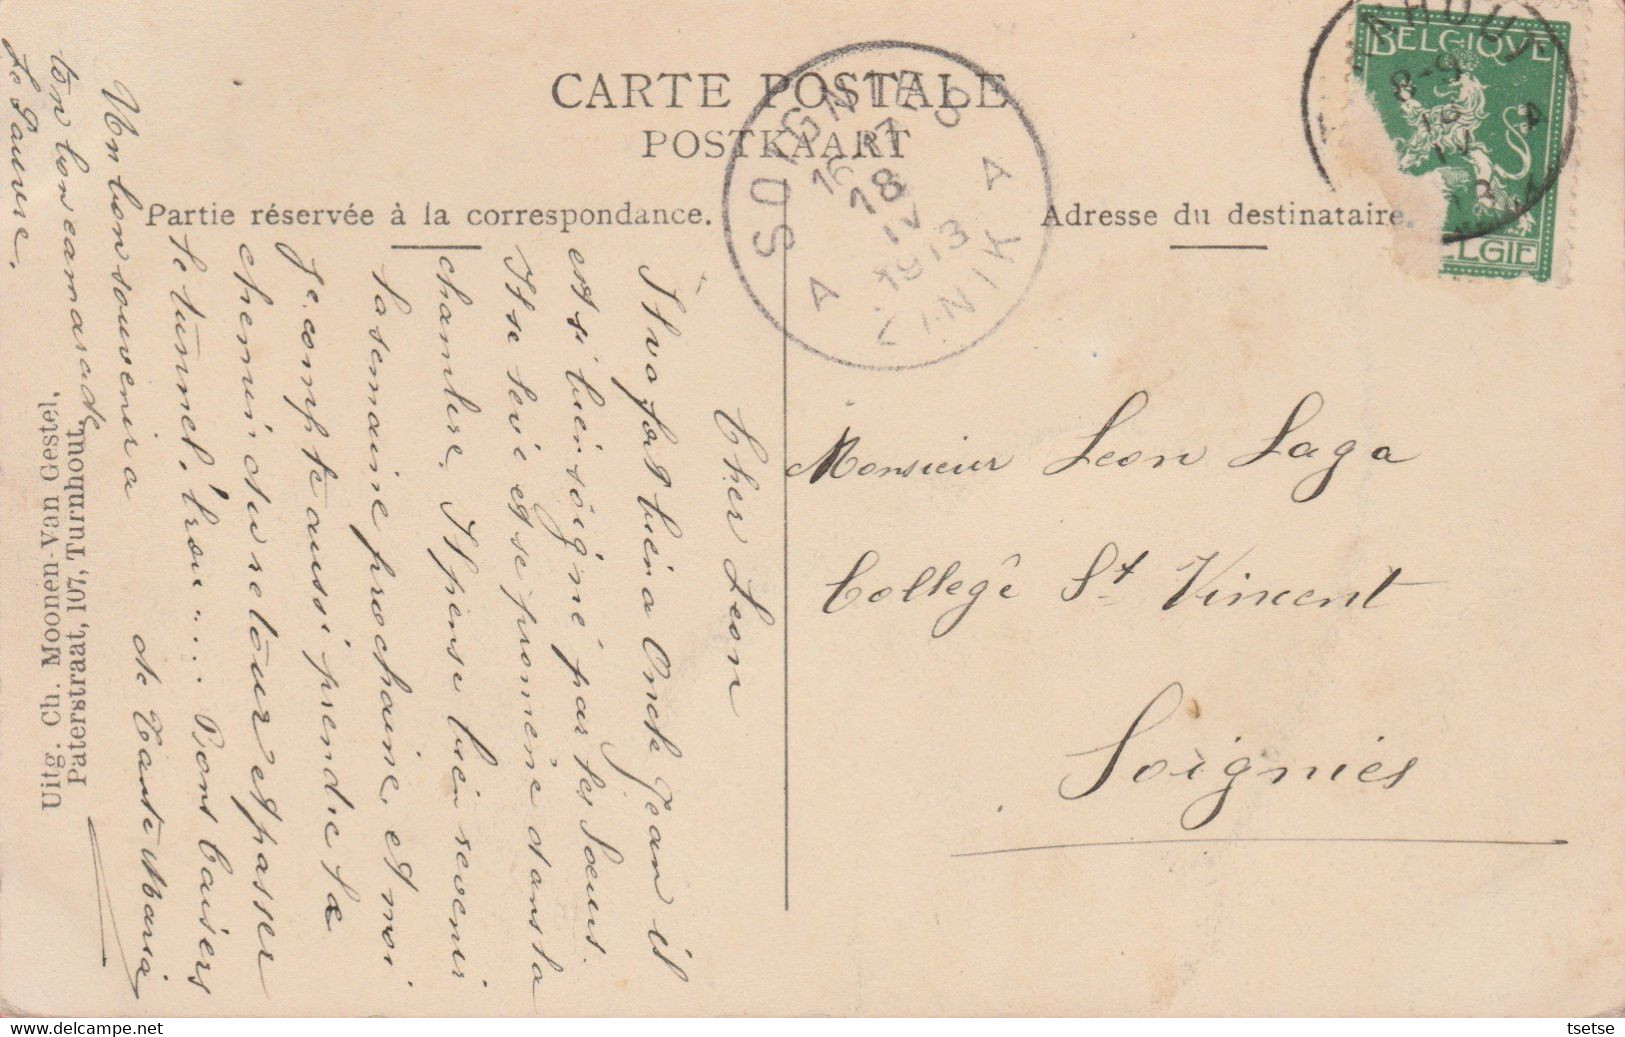 CARTE POSTALE
POSTKAART
Partie réservée à la correspondance.
Adresse du destinataire.
BELGIQUE
8-9
SOIGNIES
16-17
18
IV
1913
ZINIK
A A
Cher Leon
Il va fort bien a Onck Jean il
est si bien soigné par les Soeurs.
Il se levé et se promène dans la
chambre. Il pense bien revenir
la semaine prochaine, et moi
Je compte aussi prendre le
chemin du retour et passer
le tunnel, trou .... Bons baisers
de Tante Maria
Un bon souvenir a
ton bon camarade
Le Pauvre.
Uitg. Ch. Moonen-Van Gestel,
Paterstraat, 107, Turnhout.
Monsieur Leon Laga
Collegê St Vincent
Soignies
tsetse